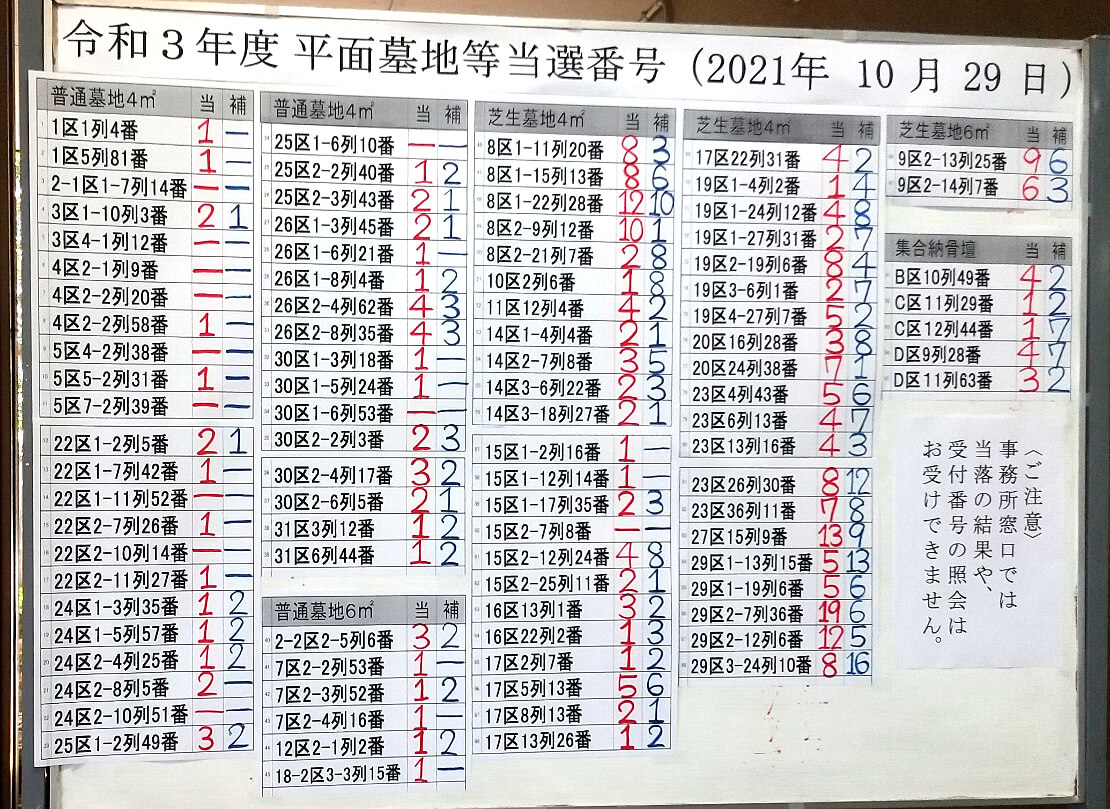 令和3年度 平面墓地等当選番号 (2021年 10 月 29 日)
普通墓地4㎡ 当 補
1区1列4番 1 ―
1区5列81番 1 ―
2-1区1-7列14番 ― ―
3区1-10列3番 2 1
3区4-1列12番 ― ―
4区2-1列9番 ― ―
4区2-2列20番 ― ―
4区2-2列58番 1 ―
5区4-2列38番 ― ―
5区5-2列31番 1 ―
5区7-2列39番 ― ―
22区1-2列5番 2 1
22区1-7列42番 1 ―
22区1-11列52番 ― ―
22区2-7列26番 1 ―
22区2-10列14番 ― ―
22区2-11列27番 1 ―
24区1-3列35番 1 2
24区1-5列57番 1 2
24区2-4列25番 1 2
24区2-8列5番 2 ―
24区2-10列51番 ― ―
25区1-2列49番 3 2
普通墓地4㎡ 当 補
25区1-6列10番 ― ―
25区2-2列40番 1 2
25区2-3列43番 2 1
26区1-3列45番 2 1
26区1-6列21番 1 ―
26区1-8列4番 1 2
26区2-4列62番 4 3
26区2-8列35番 4 3
30区1-3列18番 1 ―
30区1-5列24番 1 ―
30区1-6列53番 ― ―
30区2-2列3番 2 3
30区2-4列17番 3 2
30区2-6列5番 2 1
31区3列12番 1 2
31区6列44番 1 2
普通墓地6㎡ 当 補
2-2区2-5列6番 3 2
7区2-2列53番 1 ―
7区2-3列52番 1 2
7区2-4列16番 1 ―
12区2-1列2番 1 2
18-2区3-3列15番 1 ―
芝生墓地4㎡ 当 補
8区1-11列20番 8 3
8区1-15列13番 8 6
8区1-22列28番 12 10
8区2-9列12番 10 1
8区2-21列7番 2 8
10区2列6番 1 8
11区12列4番 4 2
14区1-4列4番 2 1
14区2-7列8番 3 5
14区3-6列22番 2 3
14区3-18列27番 2 1
15区1-2列16番 1 ―
15区1-12列14番 1 ―
15区1-17列35番 2 3
15区2-7列8番 ― ―
15区2-12列24番 4 8
15区2-25列11番 2 1
16区13列1番 3 2
16区22列2番 1 3
17区2列7番 1 2
17区5列13番 5 6
17区8列13番 2 1
17区13列26番 1 2
芝生墓地4㎡ 当 補
17区22列31番 4 2
19区1-4列2番 1 4
19区1-24列12番 4 8
19区1-27列31番 2 7
19区2-19列6番 8 4
19区3-6列1番 2 7
19区4-27列7番 5 2
20区16列28番 3 8
20区24列38番 7 1
23区4列43番 5 6
23区6列13番 4 7
23区13列16番 4 3
23区26列30番 8 12
23区36列11番 7 8
27区15列9番 13 9
29区1-13列15番 5 13
29区1-19列6番 5 6
29区2-7列36番 19 6
29区2-12列6番 12 5
29区3-24列10番 8 16
芝生墓地6㎡ 当 補
9区2-13列25番 9 6
9区2-14列7番 6 3
集合納骨壇 当 補
B区10列49番 4 2
C区11列29番 1 2
C区12列44番 1 7
D区9列28番 4 7
D区11列63番 3 2
〈ご注意〉
事務所窓口では
当落の結果や、
受付番号の照会は
お受けできません。